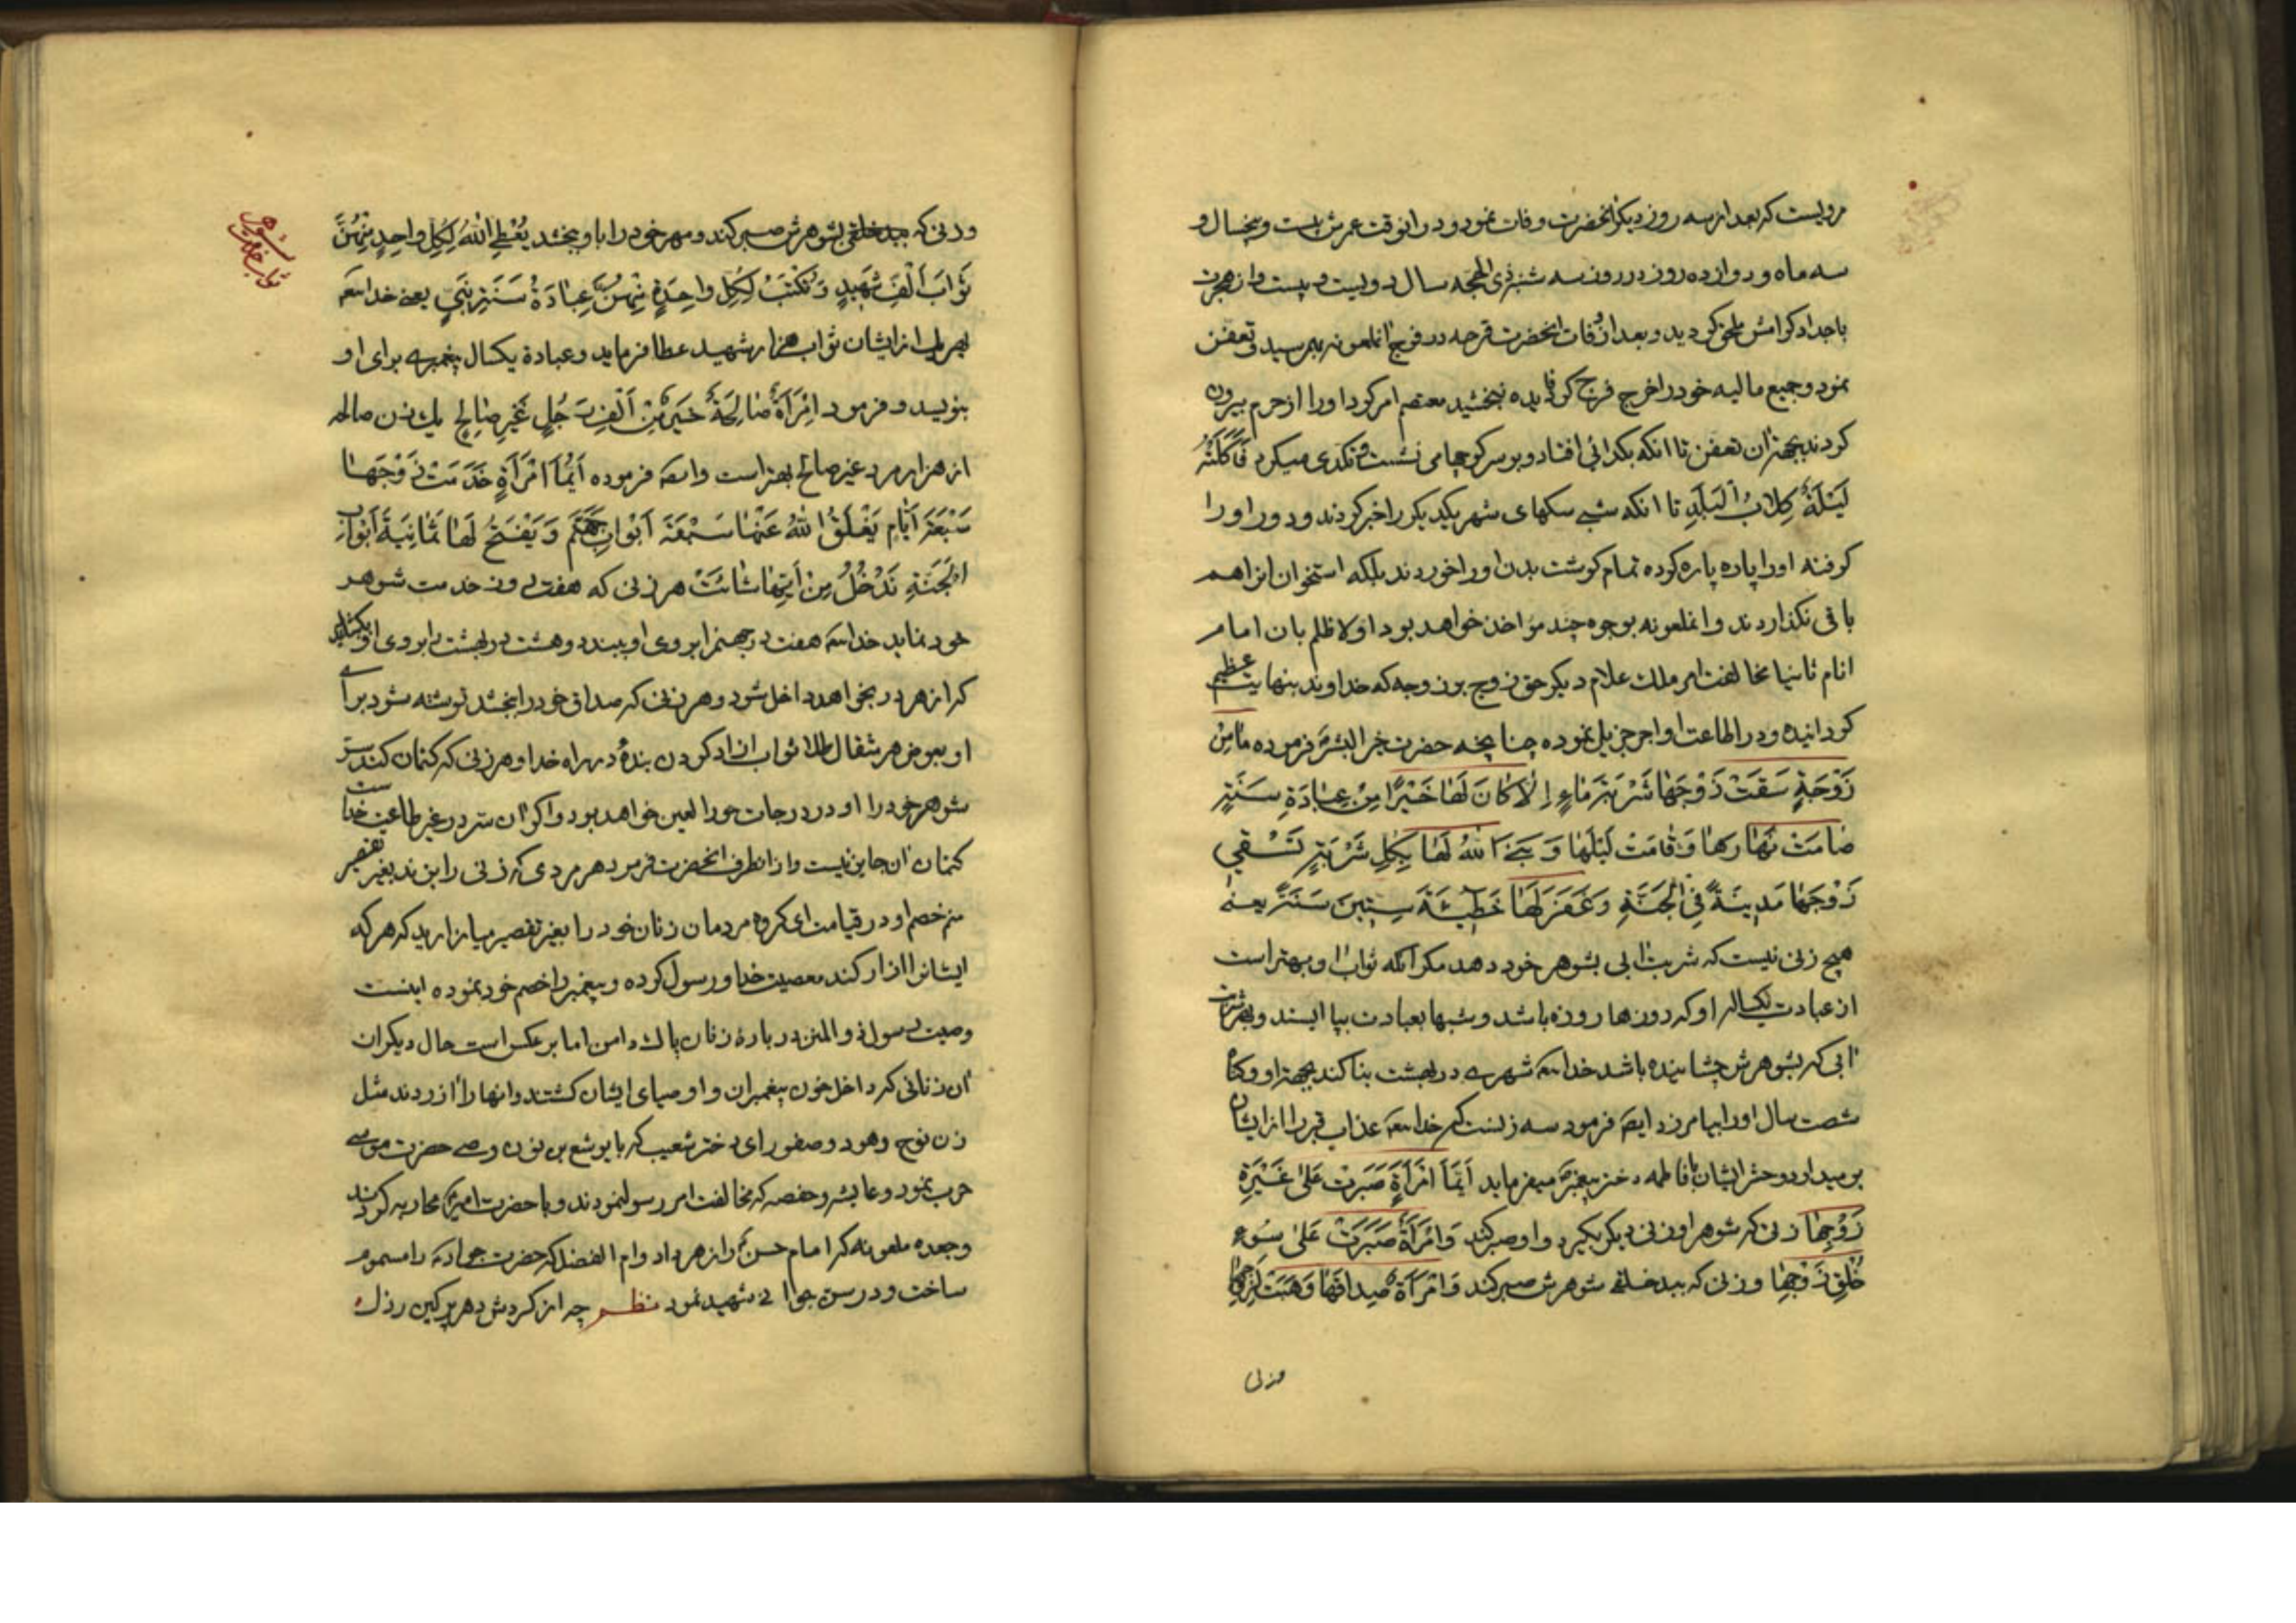 مرویست که بعد از سه روز دیگر آنحضرت وفات نمود و در آنوقت عمرش بیست و پنجسال و
سه ماه و دوازده روز در روز سه شنبه ذی الحجه سال دویست و بیست از هجرت
باجداد کرامش ملحق کردید و بعد از وفات آنحضرت قرحه در فرج آنملعونه بهمرسید و تعفن
نمود و جمیع مالیه خود را خرج فرج کرد فایده نبخشید معتصم امر کرد او را از حرم بیرون
کردند بجهة آن تعفن تا آنکه بکدائی افتاد و بر سر کوچها می نشست و کدی میکرد فَاَکَلَتْهُ
لَیْلَةً کِلابُ الْبَلَدِ تا آنکه شبی سکهای شهر یکدیکر را خبر کردند و دور او را
کرفته او را پاره پاره کرده تمام کوشت بدن او را خوردند بلکه استخوان انرا هم
باقی نکذاردند و آنملعونه بوجوه چند مواخذ خواهد بود اولا ظلم بان امام
انام ثانیا مخالفت امر ملک علام دیکر حق زوج بر زوجه که خداوند بنهایت عظیم
کردانیده و در اطاعت او اجر جزیل نموده چنانچه حضرت خیر البشر فرموده مامِنْ
زَوْجَةٍ سَقَتْ زَوْجَها شَرْبَةَ ماءٍ اِلّا کانَ لَها خَیْرًا مِنْ عِبادَةِ سَنَةٍ
صامَتْ نَهارَها وَ قامَتْ لَیْلَها وَ بَنَی اللّهُ لَها بِکُلِّ شَرْبَةٍ تَسْقِی
زَوْجَها مَدِینَةً فِی الْجَنَّةِ وَ غَفَرَ لَها خَطِیئَةَ سِتِّینَ سَنَةً یعنی
هیچ زنی نیست که شربت آبی بشوهر خود دهد مکر آنکه ثواب او بهتر است
از عبادت یکساله او که روزها روزه باشد و شبها بعبادت بپا ایستد و بهر شربت
آبی که بشوهرش چشانیده باشد خدایتعه شهری در بهشت بنا کند بجهة او و کناه
شصت سال او را بیامرزد ایضه فرمود سه زنست که خدایتعه عذاب قبر را از ایشان
بر میدارد و حشر ایشان با فاطمه دختر پیغمبر میفرماید اَیُّمَا امْرَأَةٍ صَبَرَتْ عَلی غَیْرَةِ
زَوْجِها زنی که شوهر او زنی دیکر بکیرد و او صبر کند وَ امْرَأَةٌ صَبَرَتْ عَلی سُوءِ
خُلْقِ زَوْجِها و زنی که ببد خلقی شوهرش صبر کند وَ امْرَأَةٌ صِداقَها وَهَبَتْ لِزَوْجِها
وزنی
وزنی که ببد خلقی شوهرش صبر کند و مهر خود را باو بخشد یُعْطِی اللّهُ لِکُلِّ واحِدٍ مِنْهُنَّ
ثَوابَ اَلْفِ شَهِیدٍ وَ تُکْتَبُ لِکُلِّ واحِدَةٍ مِنْهُنَّ عِبادَةُ سَنَةِ نَبِیٍّ یعنی خدایتعه
بهر یک از ایشان ثواب هزار شهید عطا فرماید و عبادة یکسال پیغمبری برای او
بنویسد و فرمود اِمْرَأَةٌ صالِحَةٌ خَیْرٌ مِنْ اَلْفِ رَجُلٍ غَیْرِ صالِحٍ یک زن صالحه
از هزار مرد غیر صالح بهتر است وایضه فرموده اَیُّمَا امْرَأَةٍ خَدَمَتْ زَوْجَها
سَبْعَةَ اَیّامٍ یَغْلَقُ اللّهُ عَنْها سَبْعَةَ اَبْوابِ جَهَنَّمَ وَ یَفْتَحُ لَها ثَمانِیَةَ اَبْوابِ
الْجَنَّةِ تَدْخُلُ مِنْ اَیِّها شائَتْ هر زنی که هفت روز خدمت شوهر
خود نماید خدایتعه هفت در جهنم را بروی او ببندد و هشت در بهشت را بروی او بکشاید
که از هر در بخواهد داخل شود و هر زنی که صداق خود را بخشد نوشته شود برای
او بعوض هر مثقال طلا ثواب آزاد کردن بندهٔ در راه خدا و هر زنی که کتمان کند ستر
شوهر خود را او در درجات حور العین خواهد بود و اکر آن ستر در غیر طاعت خداست
کتمان آن جایز نیست و از آنطرف آنحضرت فرمود هر مردی که زنی را بزند بغیر تقصیر
منم خصم او در قیامت ای کروه مردمان زنان خود را بغیر تقصیر میازارید که هر که
ایشانرا آزار کند معصیت خدا و رسول کرده و پیغمبر را خصم خود نموده اینست
وصیت رسول ذو المنن در بارهٔ زنان پاک دامن اما بر عکس است حال دیکران
آن زنانی که داخل خون پیغمبران و اوصیای ایشان کشتند و آنها را آزردند مثل
زن نوح و هود و صفورای دختر شعیب که با یوشع بن نون وصی حضرت موسی
حرب نمود و عایشه و حفصه که مخالفت امر رسول نمودند و با حضرت امیر محاربه کردند
و جعده ملعونه که امام حسن را زهر داد و ام الفضل که حضرت جواد را مسموم
ساخت و در سن جوانی شهید نمود نظم چه از کردش دهر پر کین رذل
ثواب خدمت شوهر